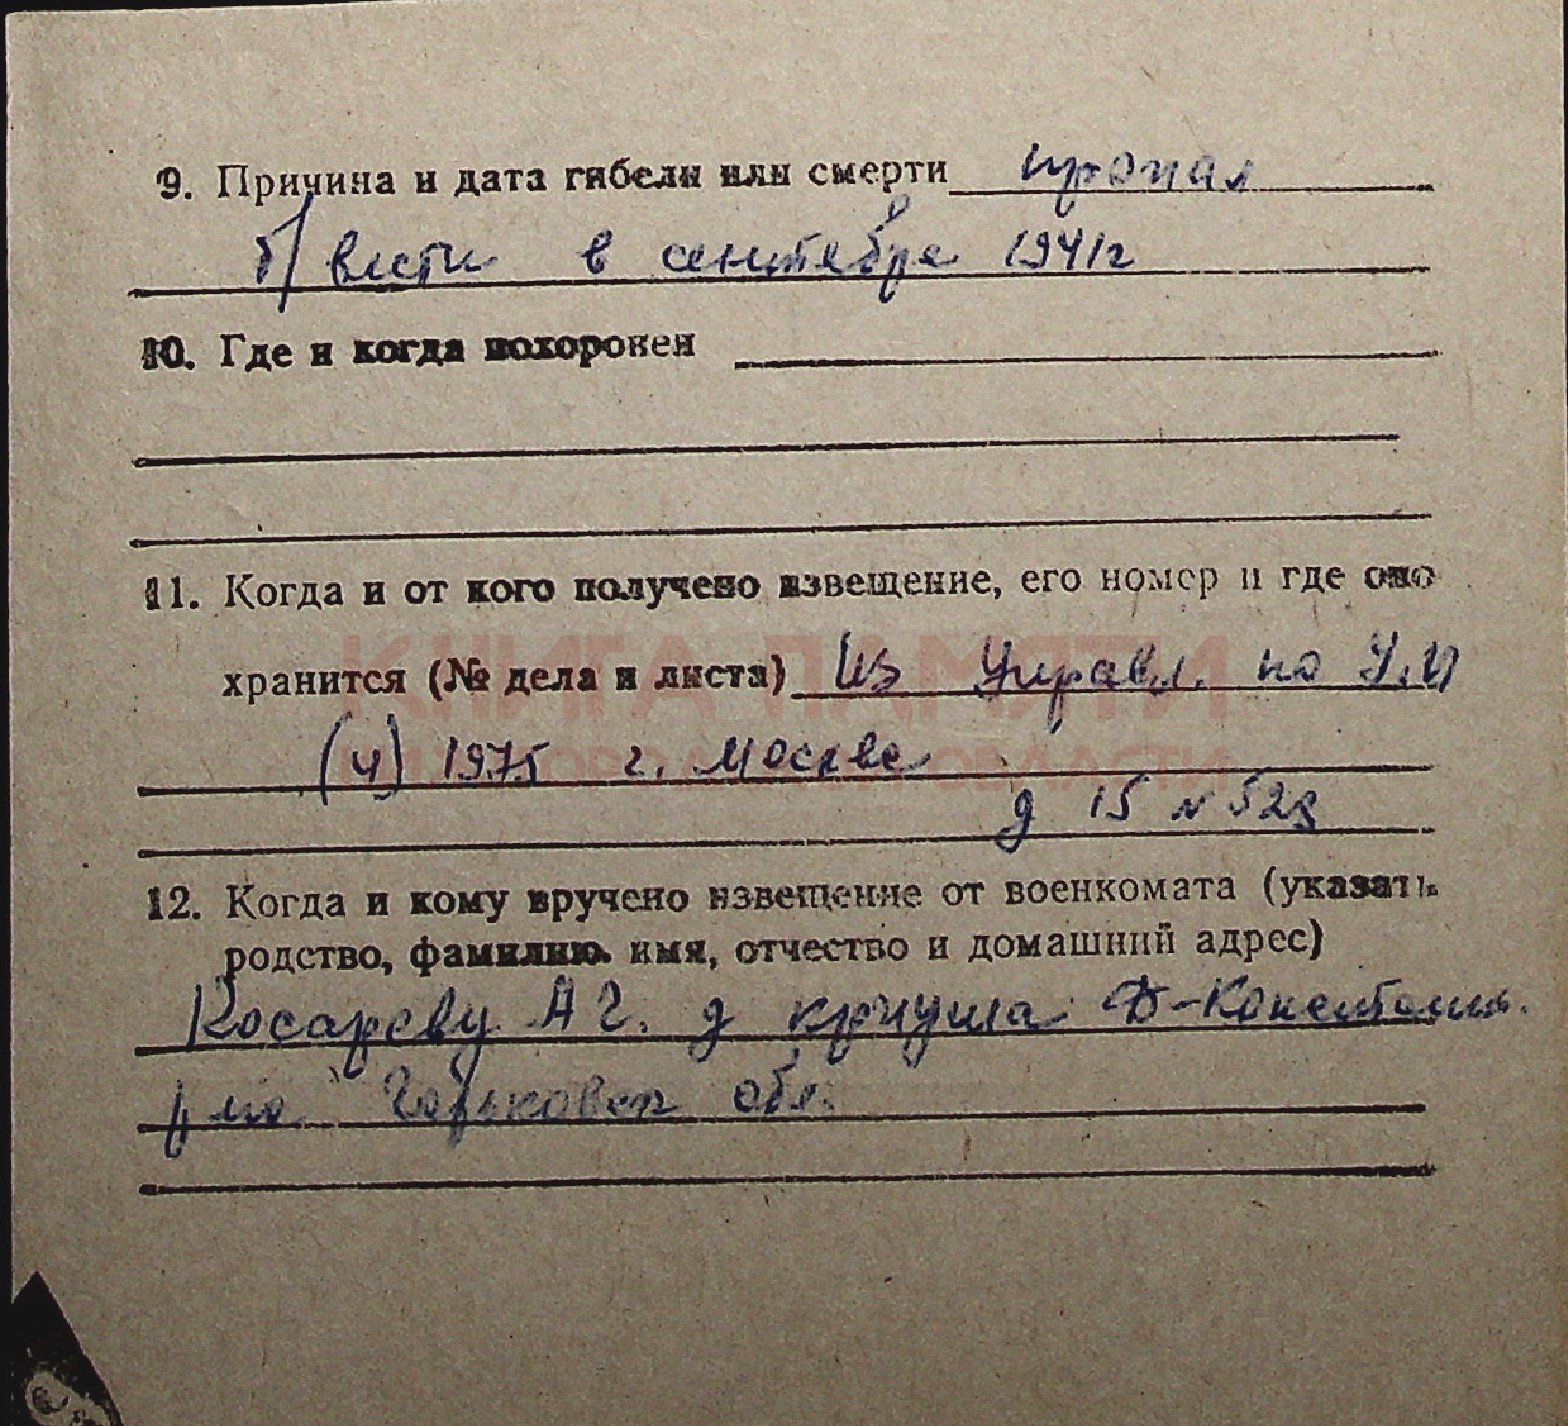 9. Причина и дата гибели или смерти пропал
б/вести в сентябре 1941г
10. Где и когда похоронен
11. Когда и от кого получено извещение, его номер и где оно
КНИГА ПАМЯТИ
хранится (№ дела и листа) Из Управл. по У.И
(ч) 1975 г. Москве
д 15 № 523
12. Когда и кому вручено извещение от военкомата (указать
родство, фамилию, имя, отчество и домашний адрес)
Косареву А Г. д Криуша Д-Константин.
р-на Горьковск обл.